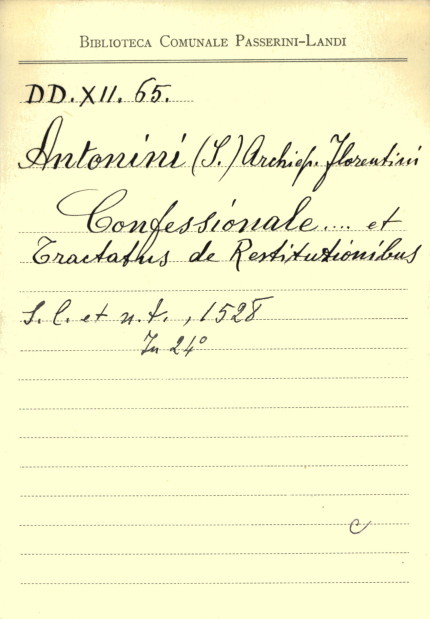 BIBLIOTECA COMUNALE PASSERINI-LANDI
DD.XII.65.
Antonini (S.) Archiep. Florentini
Confessionale.... et
Tractatus de Restitutionibus
S. l. et n. t., 1528
In 24°
c